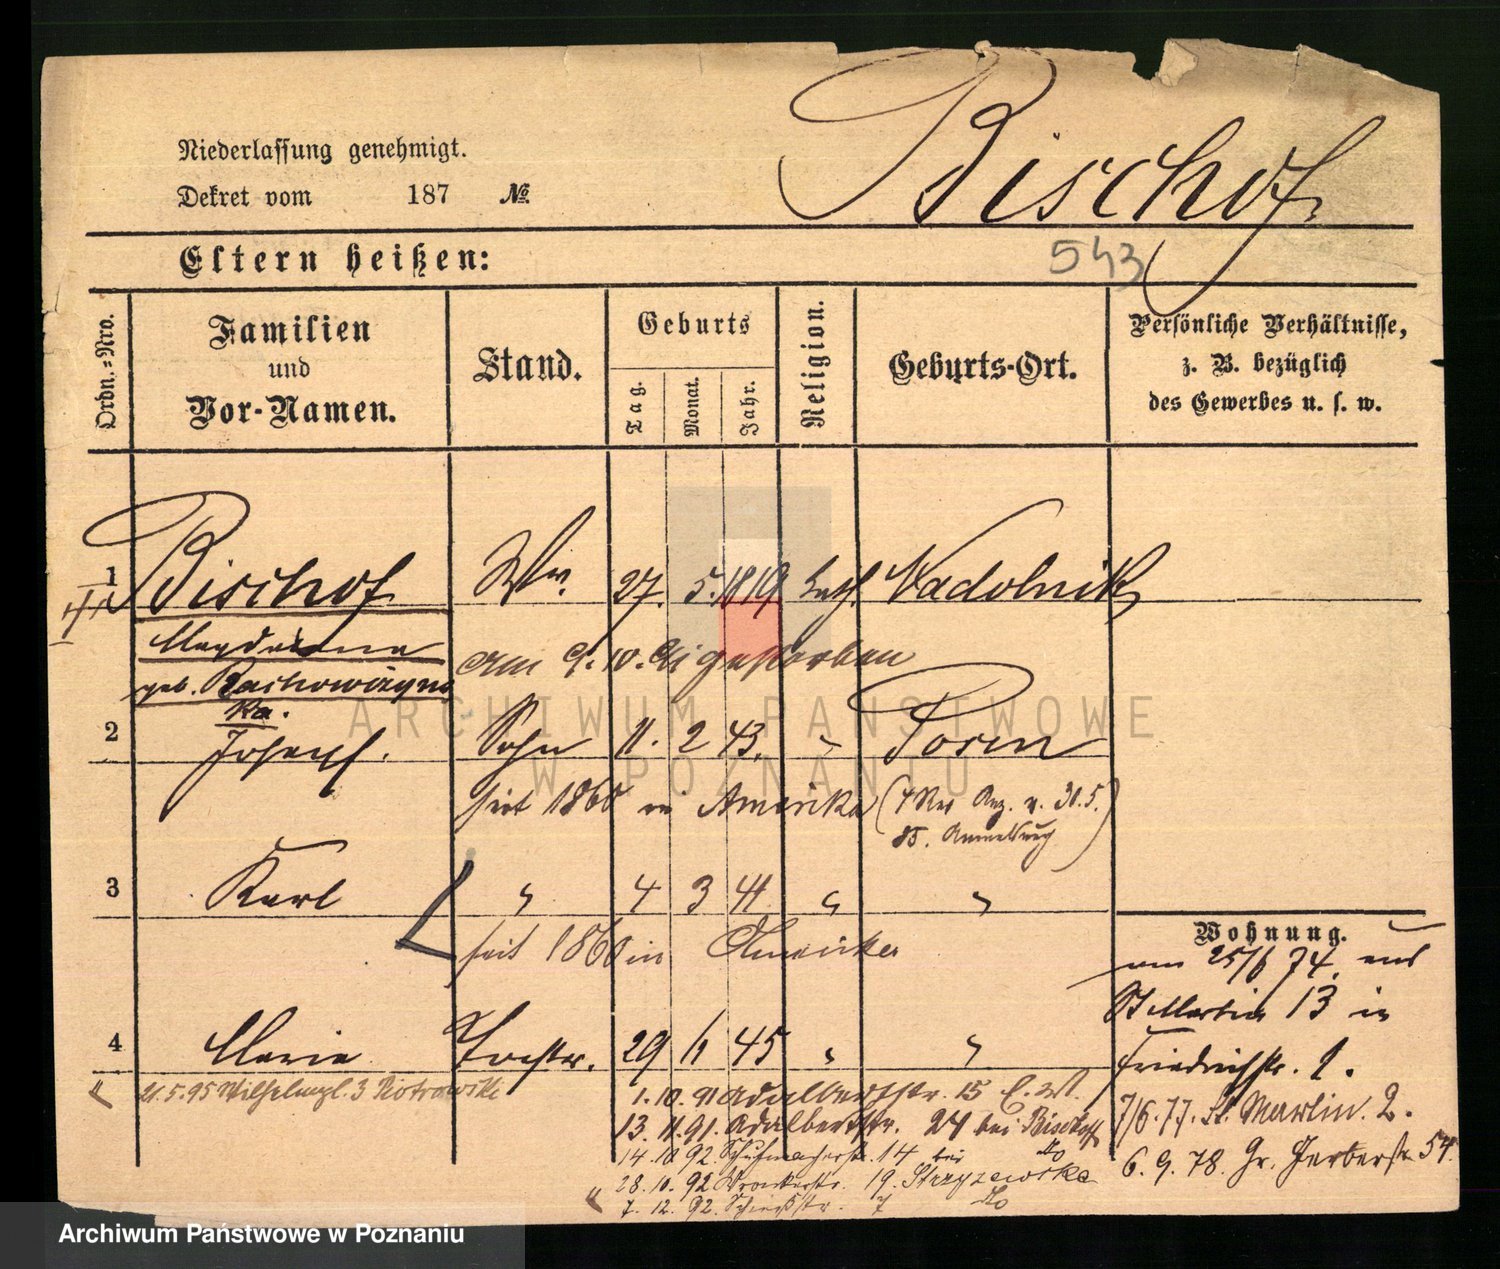 Bischof
Niederlassung genehmigt.
Dekret vom 187 №
Eltern heißen:
543
Ordn.=Nro.
Familien
und
Vor-Namen.
Stand.
Geburts
Tag.
Monat.
Jahr.
Religion.
Geburts-Ort.
Persönliche Verhältnisse,
z. B. bezüglich
des Gewerbes u. s. w.
1 Bischof Ww. 27. 5. 1819 kath. Nadolnik
Magdalena
am 9. 10. gestorben
geb.
ka.
2 Joseph. Sohn 11. 2 43. " Posen
seit 1860 in Amerika
3 Karl " 4 3 41 " "
seit 1860 in Amerika
4 Maria Tochter. 29 11 45 " "
21.5.95 Wilhelmpl. 3 Piotrowski
1. 10. 91 Adalbertstr. 15
13. 11. 91. Adalbertstr. 24 bei Bischoff
14. 10 92. Schuhmacherstr. 14 bei do
28. 10. 92 Wronkerstr. 19. Stryzewska
7. 12. 92. Schießstr. 7 do
Wohnung.
am 25/6 74. aus
St Martin 13 in
Friedrichstr. 1.
7/6. 77. St. Martin. 2.
6. 9. 78. Gr. Gerberstr. 54.
ARCHIWUM PAŃSTWOWE
W POZNANIU
Archiwum Państwowe w Poznaniu